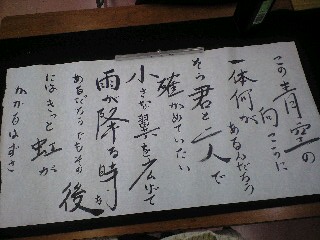 この青空の
向こうに
一体何が
あるんだろう
そう君と二人で
確かめていたい
小さな翼を広げて
雨が降る時も
あるだろうでもその後
にはきっと虹が
かかるはずさ